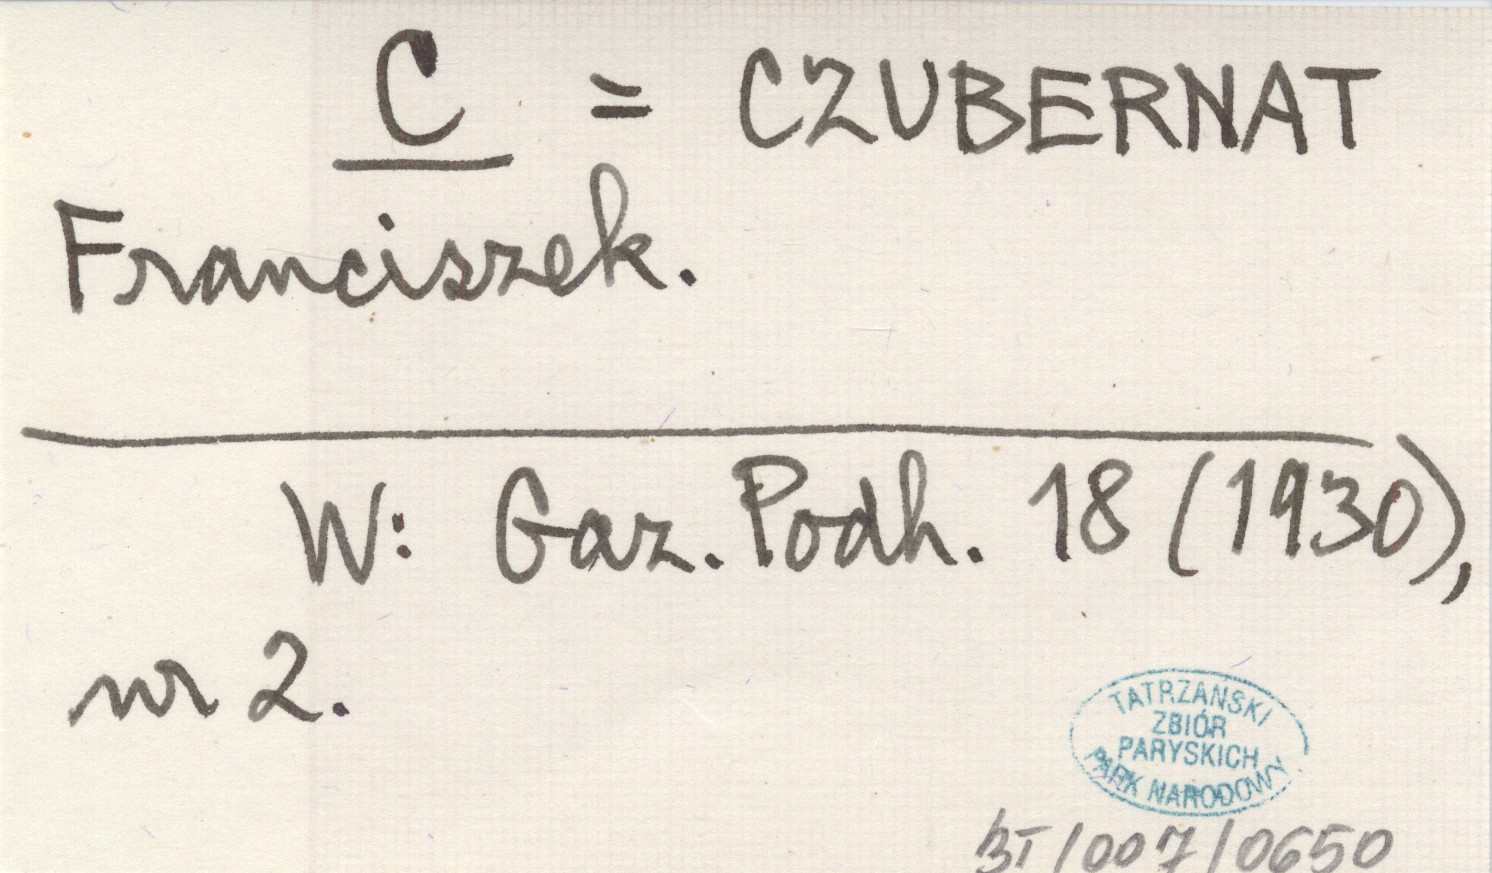 C = CZUBERNAT
Franciszek.
W: Gaz. Podh. 18 (1930),
nr 2.
TATRZAŃSKI
ZBIÓR
PARYSKICH
PARK NARODOWY
BT/007/0650